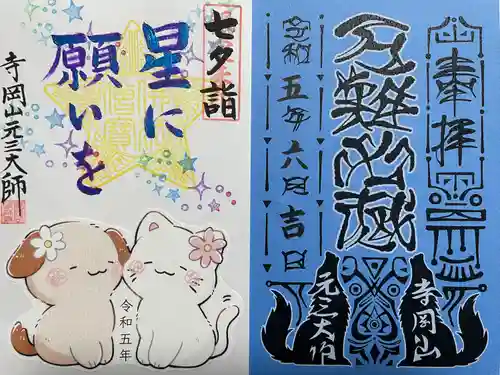 七夕詣
星に
願いを
寺岡山元三大師
令和五年
奉拝
厄難消滅
令和五年六月吉日
寺岡山
元三大師